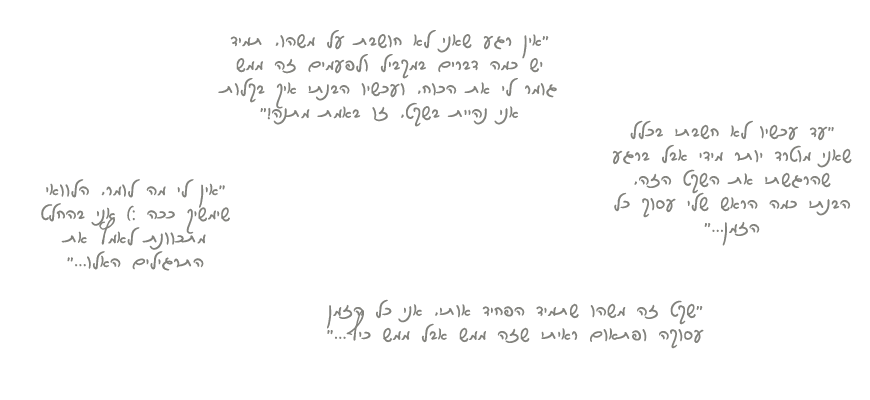 "אין רגע שאני לא חושבת על משהו. תמיד
יש כמה דברים במקביל ולפעמים זה ממש
גומר לי את הכוח. ועכשיו הבנתי איך בקלות
אני נהיית בשקט. זו באמת מתנה!"
"עד עכשיו לא חשבתי בכלל
שאני מוטרד יותר מידי אבל ברגע
שהרגשתי את השקט הזה.
הבנתי כמה הראש שלי עסוק כל
הזמן..."
"אין לי מה לומר. הלוואי
שימשיך ככה :) אני בהחלט
מתכוונת לאמץ את
התרגילים האלו..."
"שקט זה משהו שתמיד הפחיד אותי. אני כל הזמן
עסוקה ופתאום ראיתי שזה ממש אבל ממש כיף..."